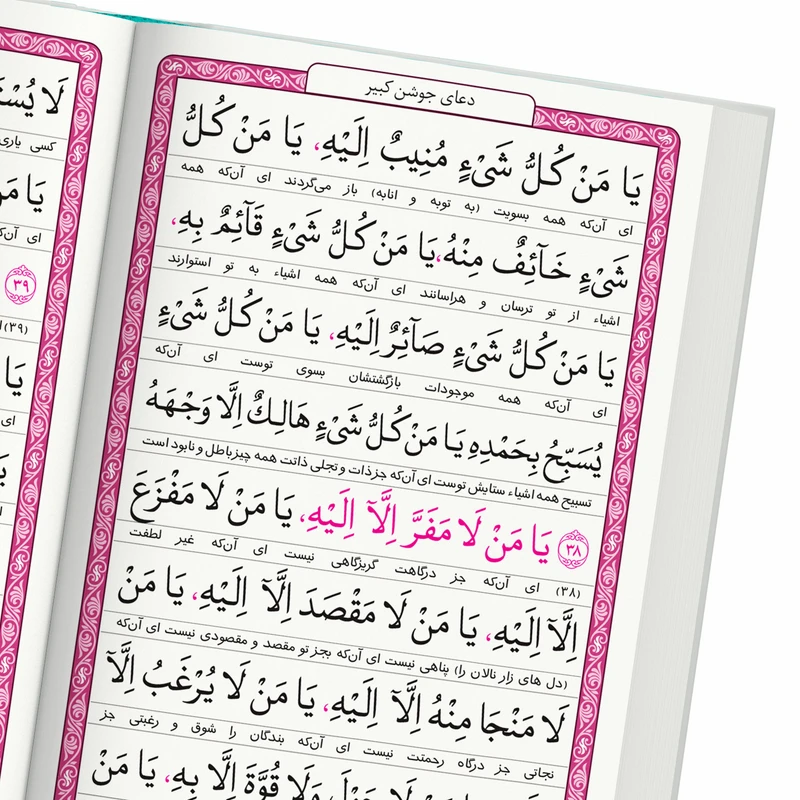 دعای جوشن کبیر
يَا مَنْ كُلُّ شَىْءٍ مُنِيبٌ اِلَيْهِ، يَا مَنْ كُلُّ
ای آن‌که همه بسویت (به توبه و انابه) باز می‌گردند ای آن‌که همه
شَىْءٍ خَآئِفٌ مِنْهُ،يَا مَنْ كُلُّ شَىْءٍ قَآئِمٌ بِهِ،
اشیاء از تو ترسان و هراسانند ای آن‌که همه اشیاء به تو استوارند
يَا مَنْ كُلُّ شَىْءٍ صَآئِرٌ اِلَيْهِ، يَا مَنْ كُلُّ شَىْءٍ
ای آن‌که همه موجودات بازگشتشان بسوی توست ای آن‌که
يُسَبِّحُ بِحَمْدِهِ يَا مَنْ كُلُّ شَىْءٍ هَالِكٌ اِلَّا وَجْهَهُ
تسبیح همه اشیاء ستایش توست ای آن‌که جز ذات و تجلی ذاتت همه چیز باطل و نابود است
۳۸ يَا مَنْ لَا مَفَرَّ اِلَّآ اِلَيْهِ، يَا مَنْ لَا مَفْزَعَ
(۳۸) ای آن‌که جز درگاهت گریزگاهی نیست ای آن‌که غیر لطفت
اِلَّآ اِلَيْهِ، يَا مَنْ لَا مَقْصَدَ اِلَّآ اِلَيْهِ، يَا مَنْ
(دل های زار نالان را) پناهی نیست ای آن‌که بجز تو مقصد و مقصودی نیست ای آن‌که
لَا مَنْجَا مِنْهُ اِلَّآ اِلَيْهِ، يَا مَنْ لَا يُرْغَبُ اِلَّآ
نجاتی جز درگاه رحمتت نیست ای آن‌که بندگان را شوق و رغبتی جز
حَوْلَ وَلَا قُوَّةَ اِلَّا بِهِ، يَا مَنْ
لَا
کسی یاری
ای آن
۳۹
(۳۹)
يَا
ای